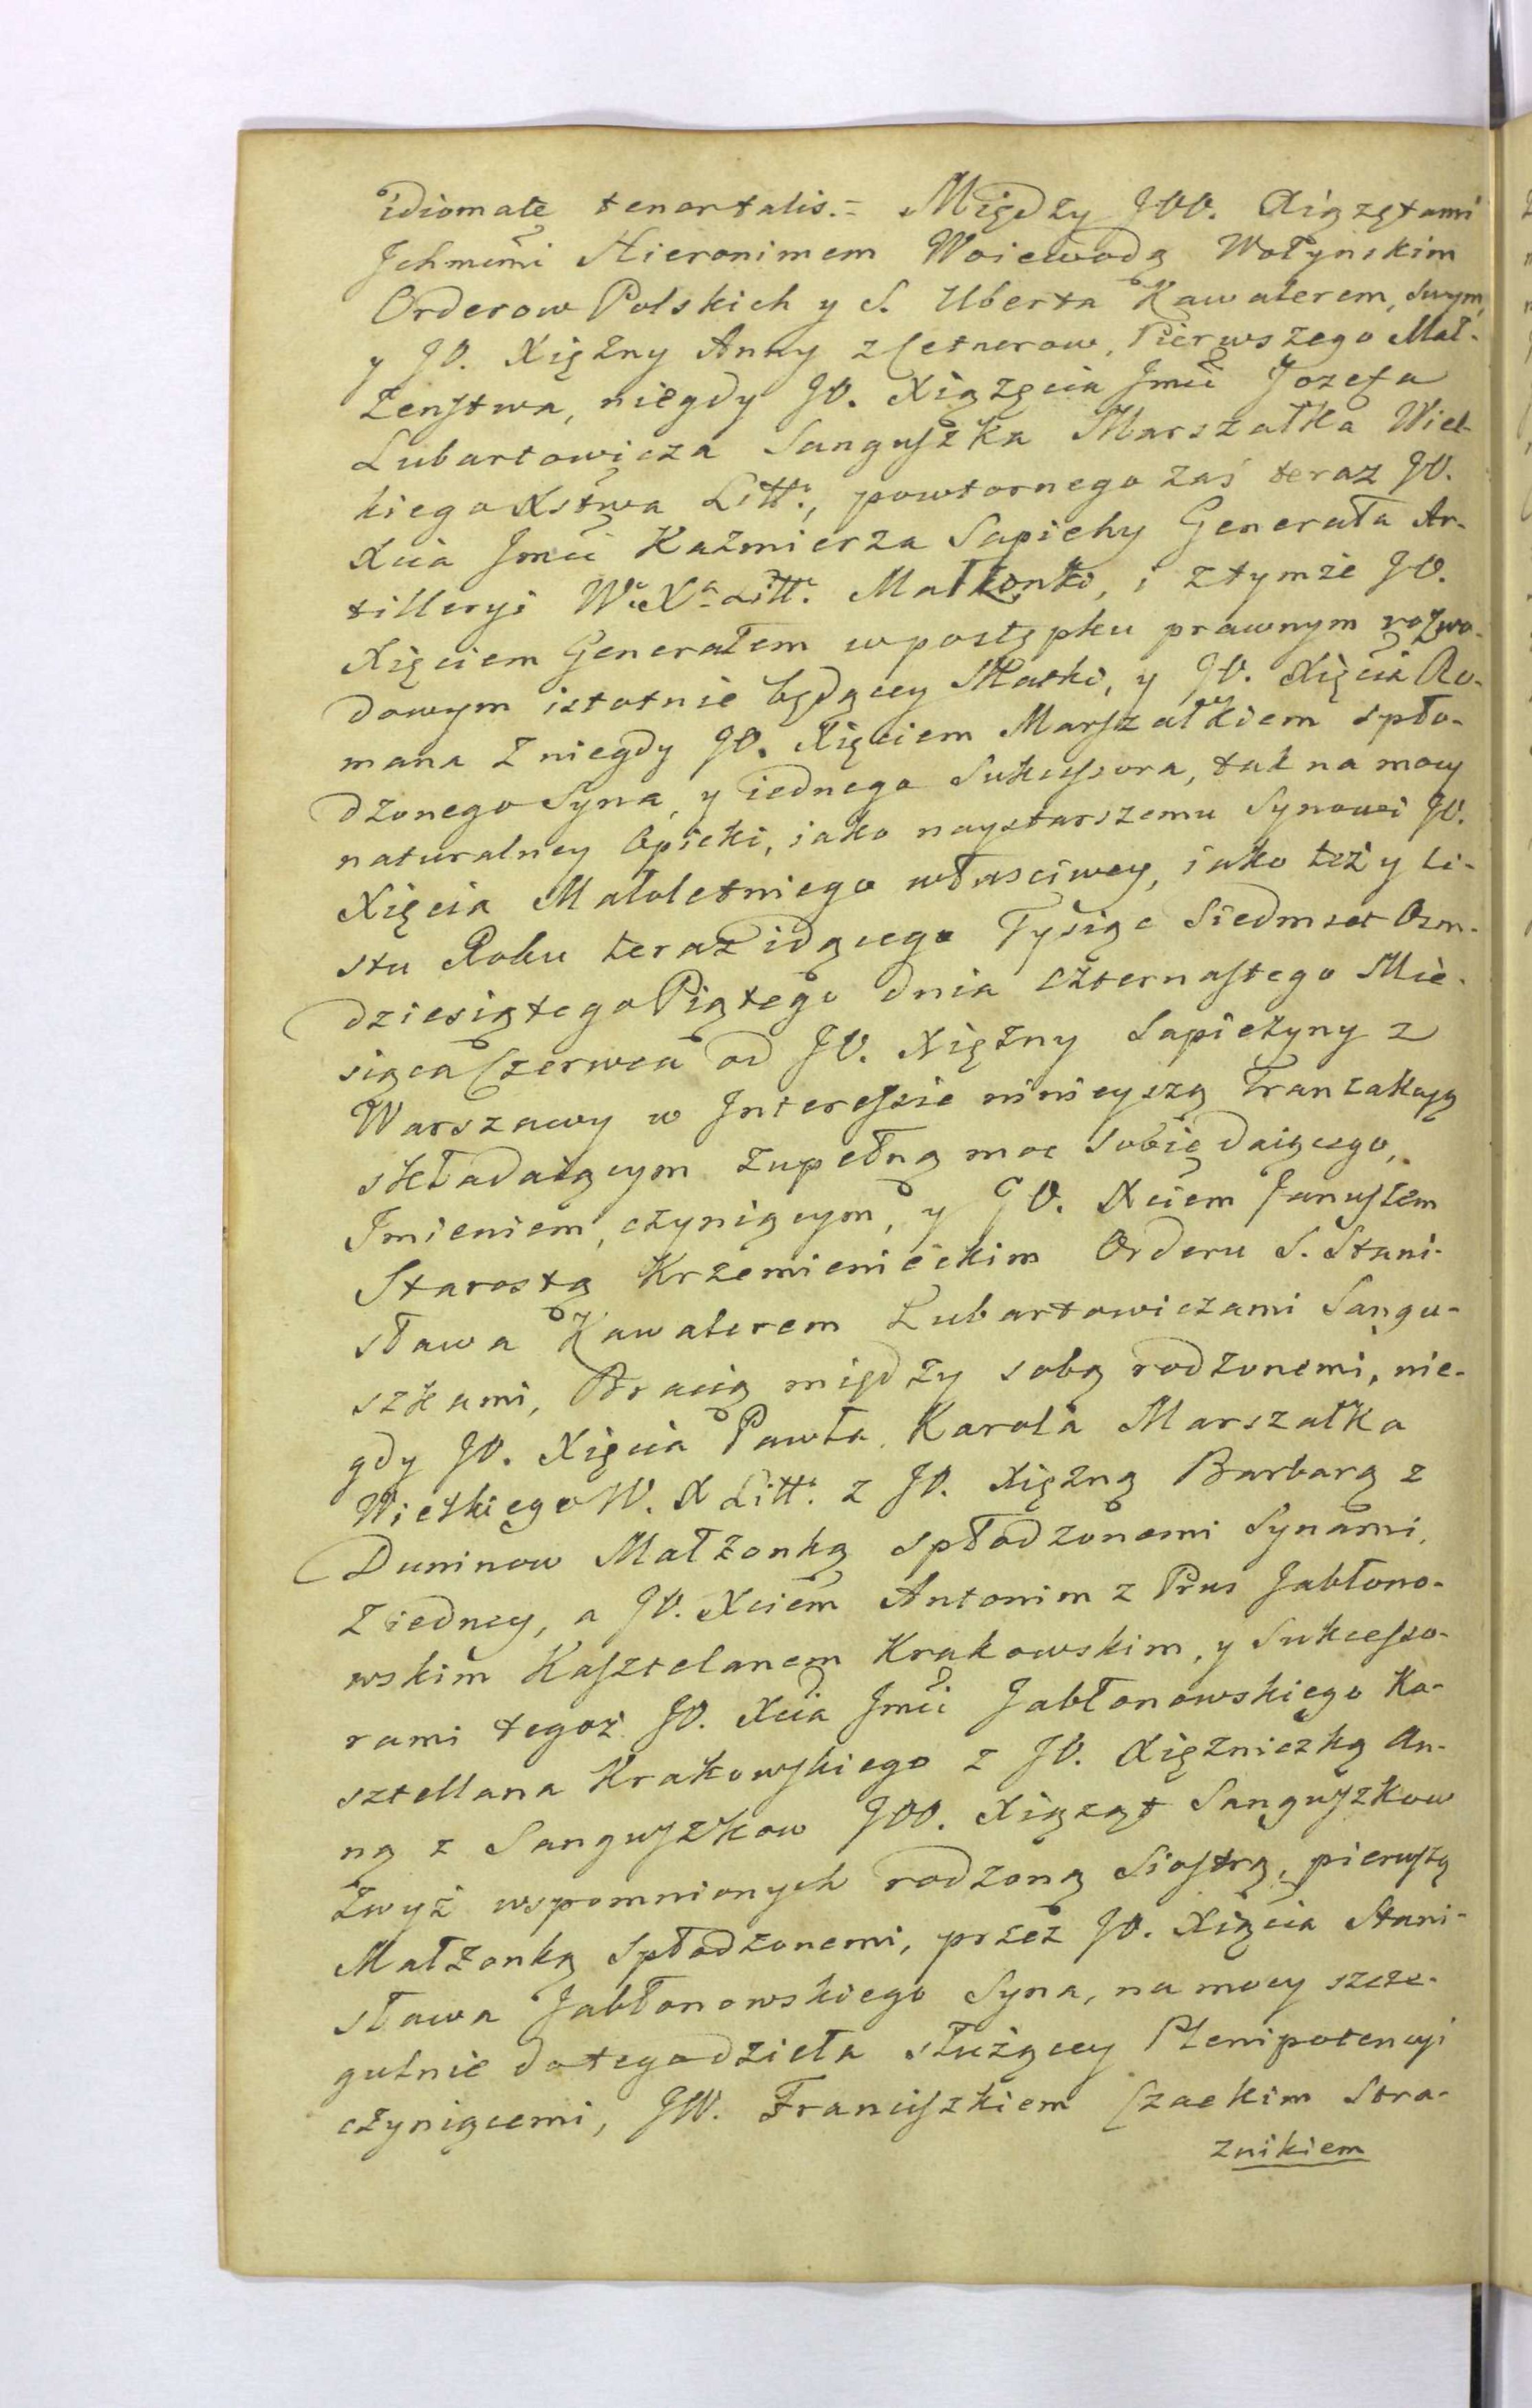 idiomate tenortalis.= Między JOO. Xiązętami
Jchmćmi Hieronimem Woiewodą Wołynskim
Orderow Polskich y S. Uberta Kawalerem, swym,
y JO. Xiężny Anny z Cetnerow, Pierwszego Mał-
żenstwa, niegdy JO. Xiązęcia Jmći Jozefa
Lubartowicza Sanguszka Marszałka Wiel-
kiego Xstwa Litt:, powtornego zaś teraz JO.
Xcia Jmći Kazmierza Sapiehy Generała Ar-
tilleryi W. Xa Litt: Małżonki, i z tymże JO.
Xięciem Generałem w postępku prawnym rozwo-
dowym istotnie będącey Matki, y JO. Xięcia Ro-
mana z niegdy JO. Xięciem Marszałkiem spło-
dzonego Syna, y iednego Sukcessora, tak na mocy
naturalney Opieki, iako naystarszemu Synowi JO.
Xięcia Małoletniego właściwey, iako też y Li-
stu Roku teraz idącego Tysiąc Siedmset Osm-
dziesiątego Piątego dnia czternastego Mie-
siąca Czerwca od JO. Xiężny Sapieżyny z
Warszawy w Interessie ninieyszą Tranzakcyą
składaiącym zupełną moc sobie daiącego,
Jmieniem, czyniącym, y JO. Xciem Januszem
Starostą Krzemienieckim Orderu S. Stani-
sława Kawalerem Lubartowiczami Sangu-
szkami, Bracią między sobą rodzonemi, nie-
gdy JO. Xięcia Pawła Karola Marszałka
Wielkiego W. X Litt: z JO. Xiężną Barbarą z
Duninow Małżonką spłodzonemi Synami,
z iedney, a JO. Xciem Antonim z Prus Jabłono-
wskim Kasztelanem Krakowskim, y Sukcesso-
rami tegoż JO. Xcia Jmći Jabłonowskiego Ka-
sztellana Krakowskiego z JO. Xiężniczką An-
ną z Sanguszkow JOO. Xiążąt Sanguszkow
zwyż wspomnionych rodzoną Siostrą, pierwszą
Małżonką spłodzonemi, przez JO. Xięcia Stani-
sława Jabłonowskiego Syna, na mocy szcze-
gulnie do tego dzieła służącey Plenipotencyi
czyniącemi, JW. Franciszkiem Czackim Stra-
znikiem